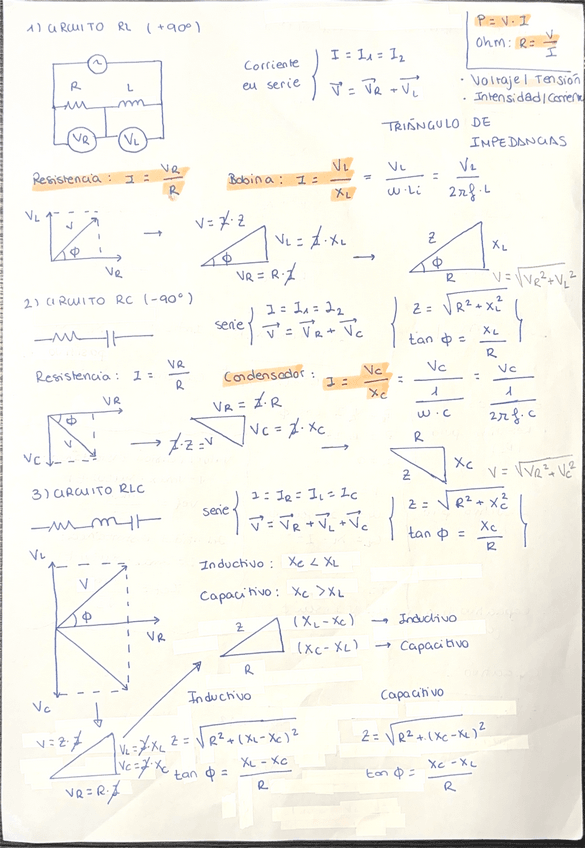 1) CIRCUITO RL (+90º)
P = V · I
Ohm: R = V/I
· Voltaje / Tensión
· Intensidad / Corriente
R L
V_R V_L
Corriente en serie { I = I₁ = I₂
V⃗ = V⃗_R + V⃗_L
TRIÁNGULO DE
IMPEDANCIAS
Resistencia: I = V_R/R
Bobina: I = V_L/X_L = V_L/(ω·Li) = V_L/(2πf·L)
V_L V ϕ V_R
V = I·Z
V_L = I·X_L
ϕ
V_R = R·I
Z X_L ϕ R
V = √(V_R² + V_L²)
2) CIRCUITO RC (-90º)
serie { I = I₁ = I₂
V⃗ = V⃗_R + V⃗_C
Z = √(R² + X_L²)
tan ϕ = X_L/R
Resistencia: I = V_R/R
Condensador: I = V_C/X_C = V_C/(1/(ω·C)) = V_C/(1/(2πf·C))
V_R ϕ V V_C
V_R = I·R
V_C = I·X_C
I·Z = V
R Z X_C
V = √(V_R² + V_C²)
3) CIRCUITO RLC
serie { I = I_R = I_L = I_C
V⃗ = V⃗_R + V⃗_L + V⃗_C
Z = √(R² + X_C²)
tan ϕ = X_C/R
V_L V ϕ V_R V_C
Inductivo: X_C < X_L
Capacitivo: X_C > X_L
Z R
(X_L - X_C) → Inductivo
(X_C - X_L) → Capacitivo
Inductivo Capacitivo
V = Z·I
V_L = I·X_L
V_C = I·X_C
V_R = R·I
Z = √(R² + (X_L - X_C)²)
tan ϕ = (X_L - X_C)/R
Z = √(R² + (X_C - X_L)²)
tan ϕ = (X_C - X_L)/R